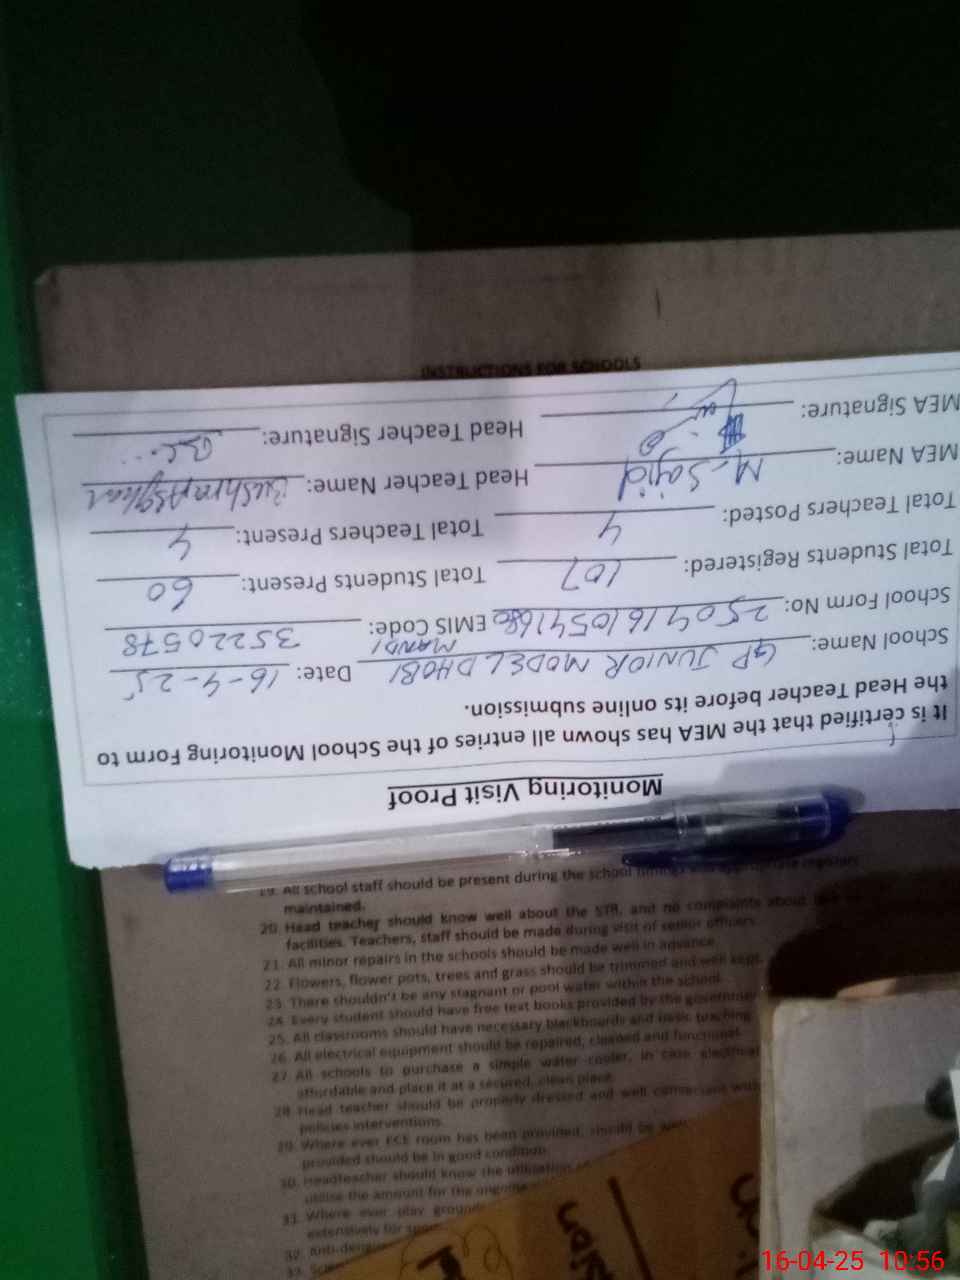 INSTRUCTIONS FOR SCHOOLS
Monitoring Visit Proof
It is certified that the MEA has shown all entries of the School Monitoring Form to
the Head Teacher before its online submission.
School Name: GP JUNIOR MODEL DHOBI MANDI Date: 16-4-25
School Form No: EMIS Code: 35220578
Total Students Registered: 107 Total Students Present: 60
Total Teachers Posted: 4 Total Teachers Present: 4
MEA Name: M. Sajid Head Teacher Name: Bushra Asghar
MEA Signature: Head Teacher Signature:
19. All school staff should be present during the school timings
maintained.
20. Head teacher should know well about the STR, and no complaints about
facilities. Teachers, staff should be made during visit of senior officers.
21. All minor repairs in the schools should be made well in advance.
22. Flowers, flower pots, trees and grass should be trimmed and well kept.
23. There shouldn't be any stagnant or pool water within the school.
24. Every student should have free text books provided by the government
25. All classrooms should have necessary blackboards and basic teaching
26. All electrical equipment should be repaired, cleaned and functional.
27. All schools to purchase a simple water cooler, in case electrical
affordable and place it at a secured, clean place.
28. Head teacher should be properly dressed and well conversant with
policies interventions.
29. Where ever ECE room has been provided, should be
provided should be in good condition.
30. Headteacher should know the utilization
utilise the amount for the ongoing
31. Where ever play ground
extensively for
32. Anti-dengue
33.
16-04-25 10:56